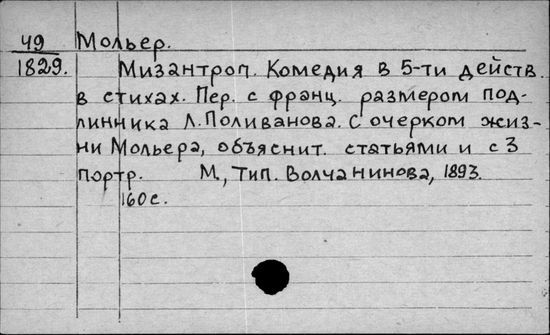 49 Мольер.
1829. Мизантроп. Комедия в 5-ти действ.
в стихах. Пер. с франц. размером под-
линника Л. Поливанова. С очерком жиз-
ни Мольера, объяснит. статьями и с 3
портр. М., Тип. Волчанинова, 1893.
160 с.